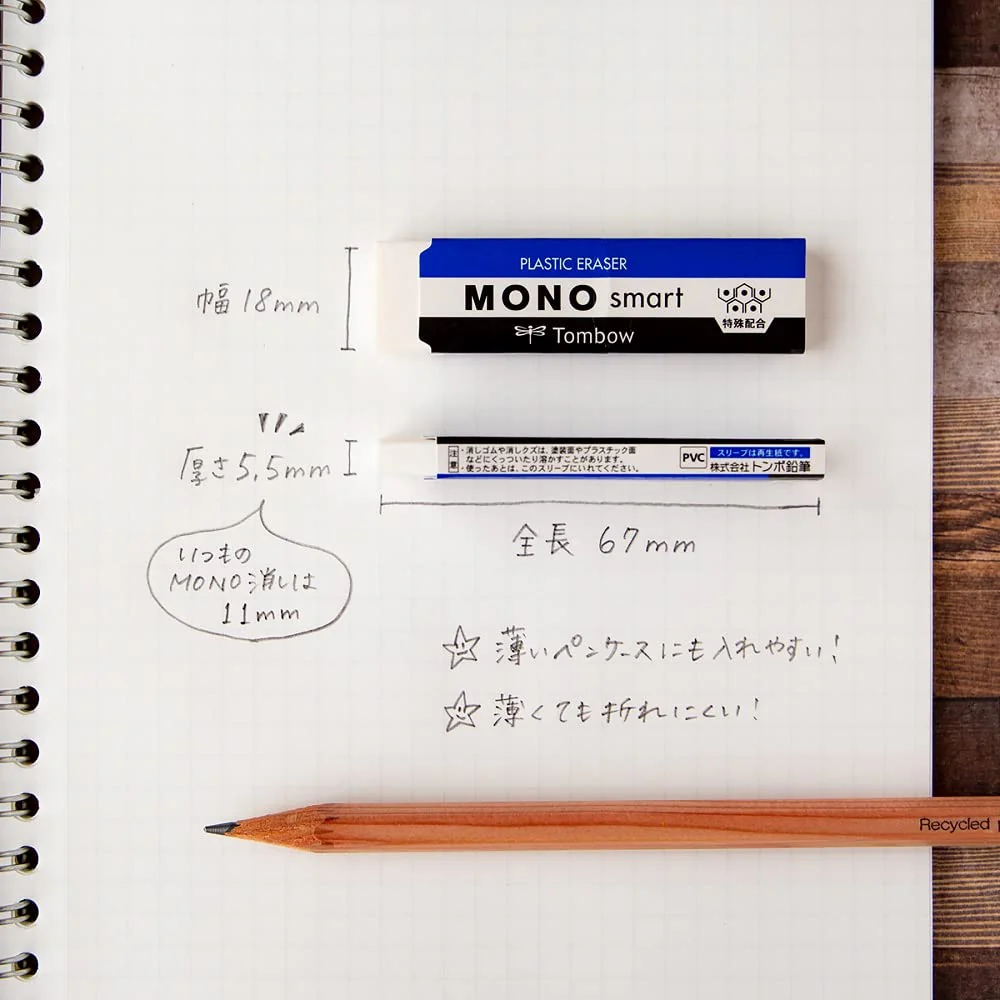 PLASTIC ERASER
MONO smart
特殊配合
Tombow
幅 18mm
厚さ 5.5mm
注意
・消しゴムや消しクズは、塗装面やプラスチック面
などにくっついたり溶かすことがあります。
・使ったあとは、このスリーブにいれてください。
PVC
スリーブは再生紙です。
株式会社トンボ鉛筆
全長 67mm
いつもの
MONO消しは
11mm
薄いペンケースにも入れやすい!
薄くても折れにくい!
Recycled